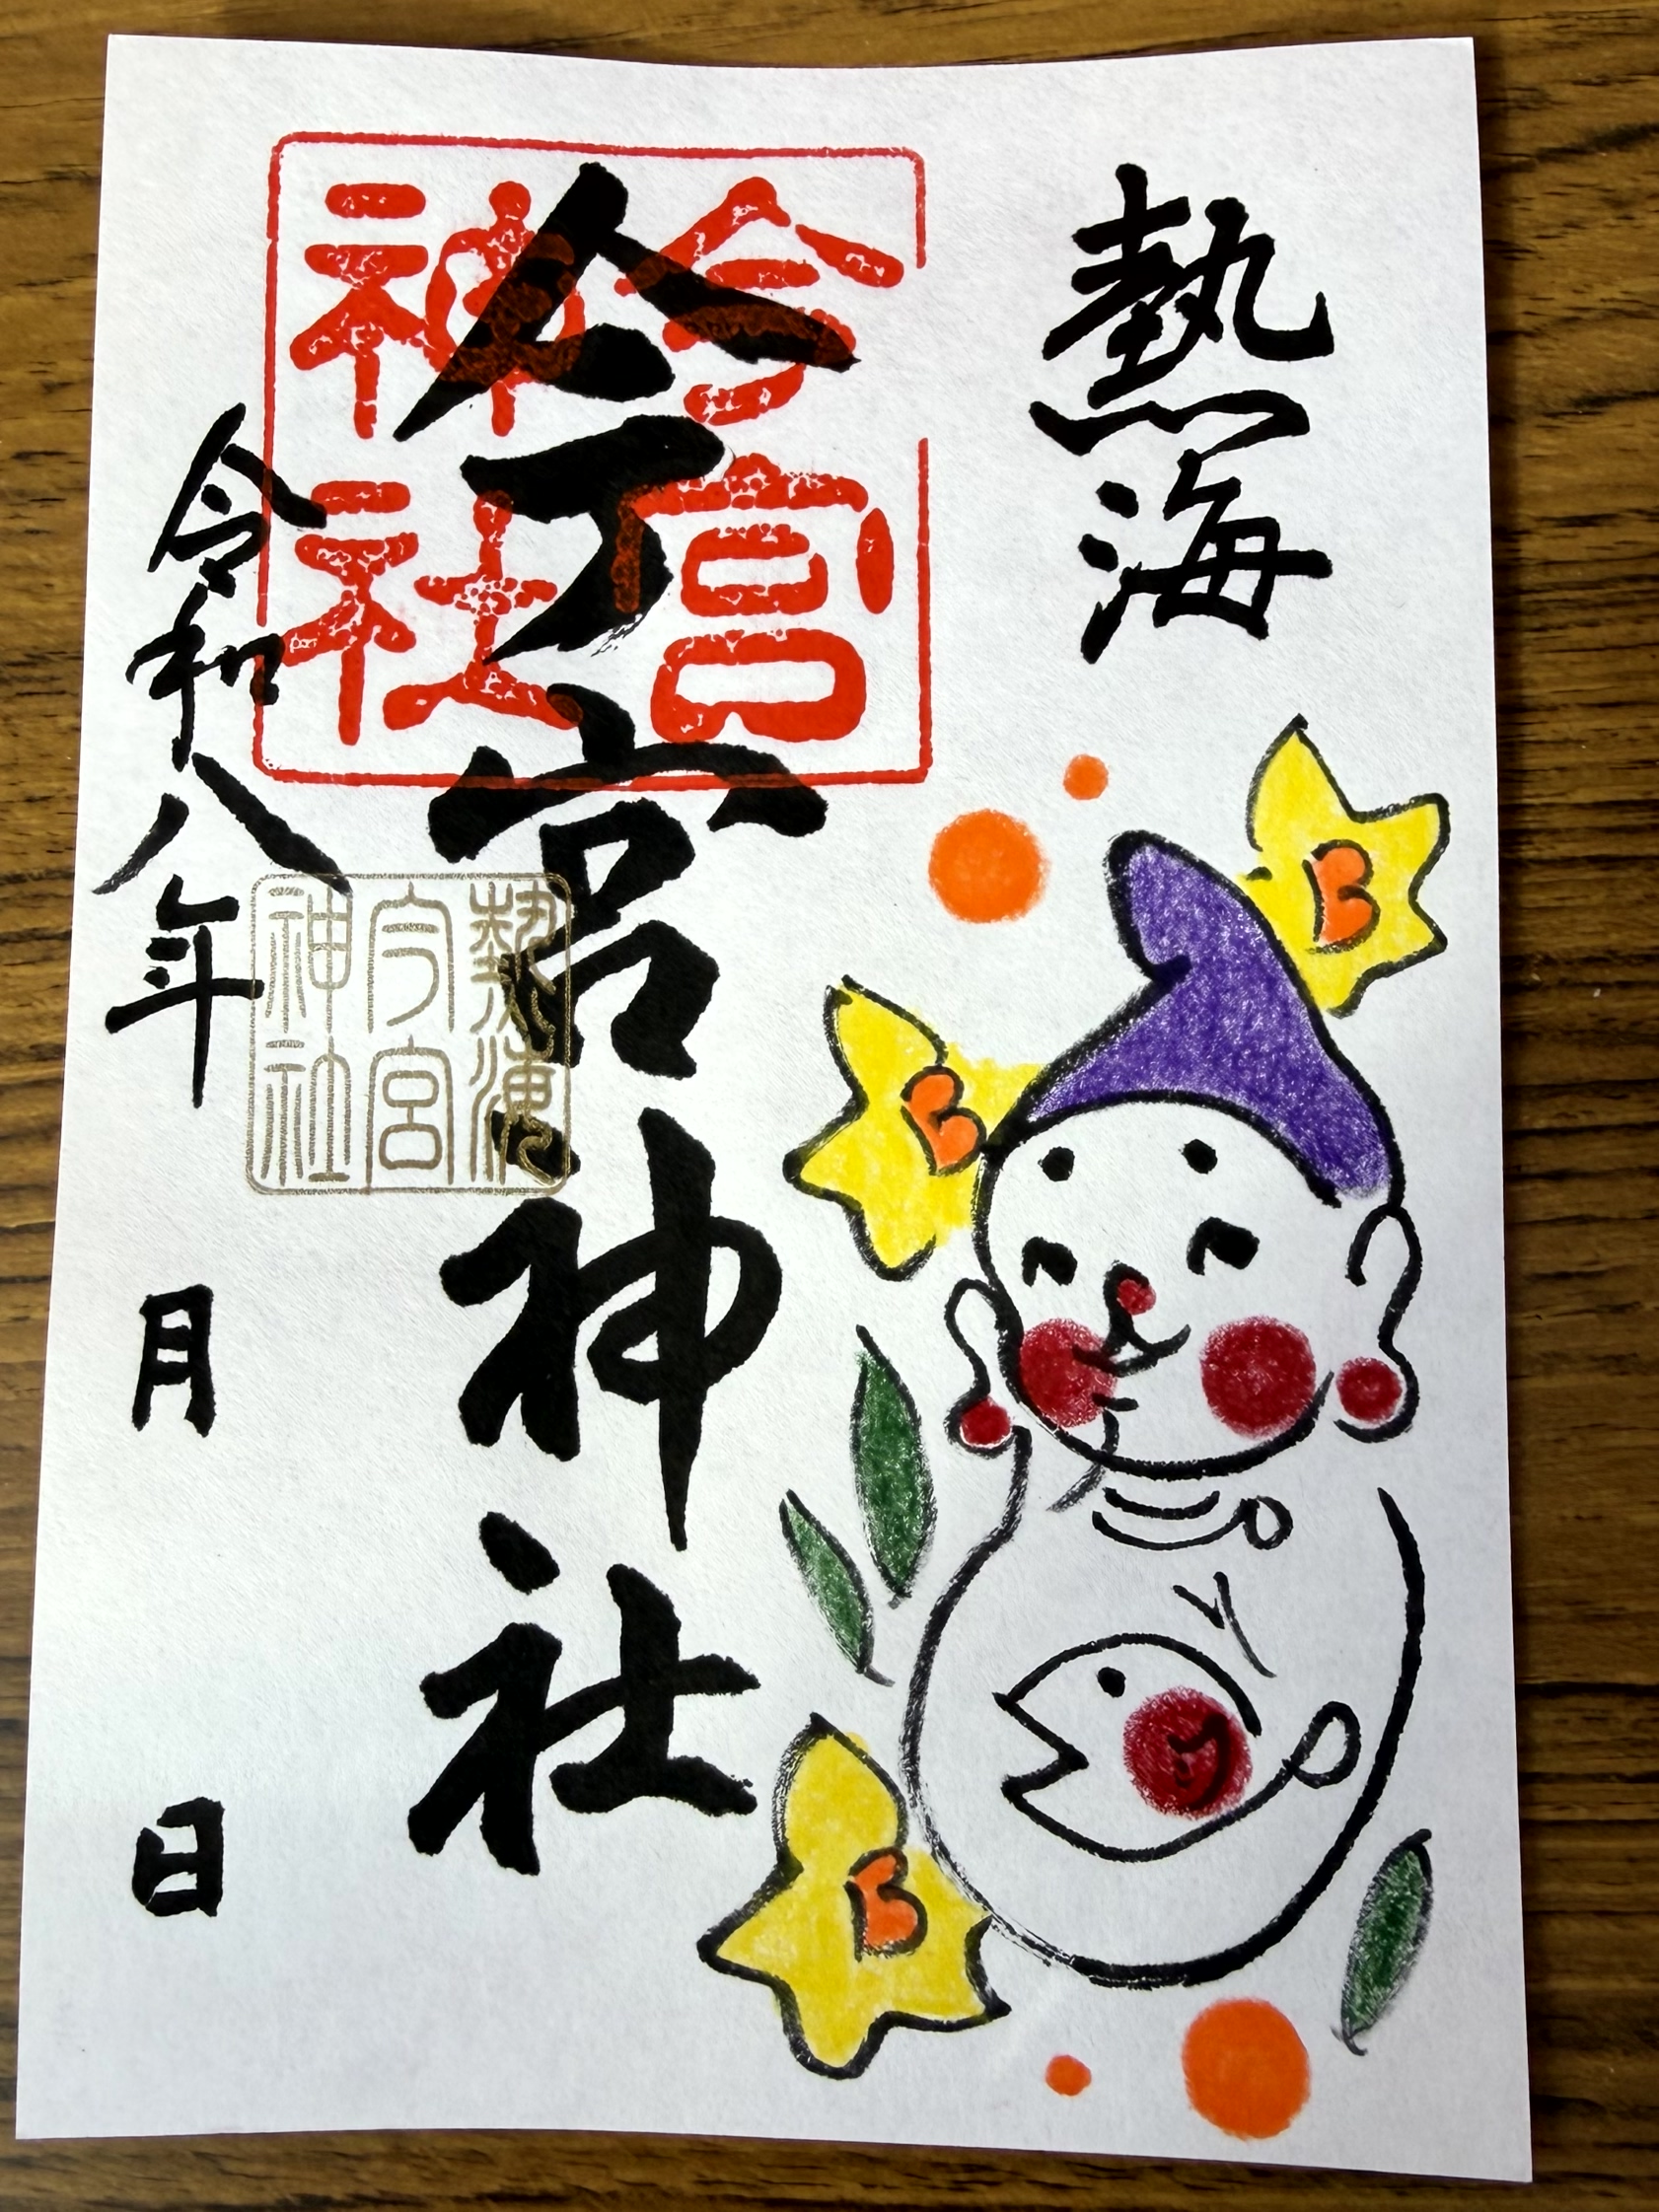 熱海
今宮神社
今宮
神社
熱海
今宮
神社
令和八年　月　日